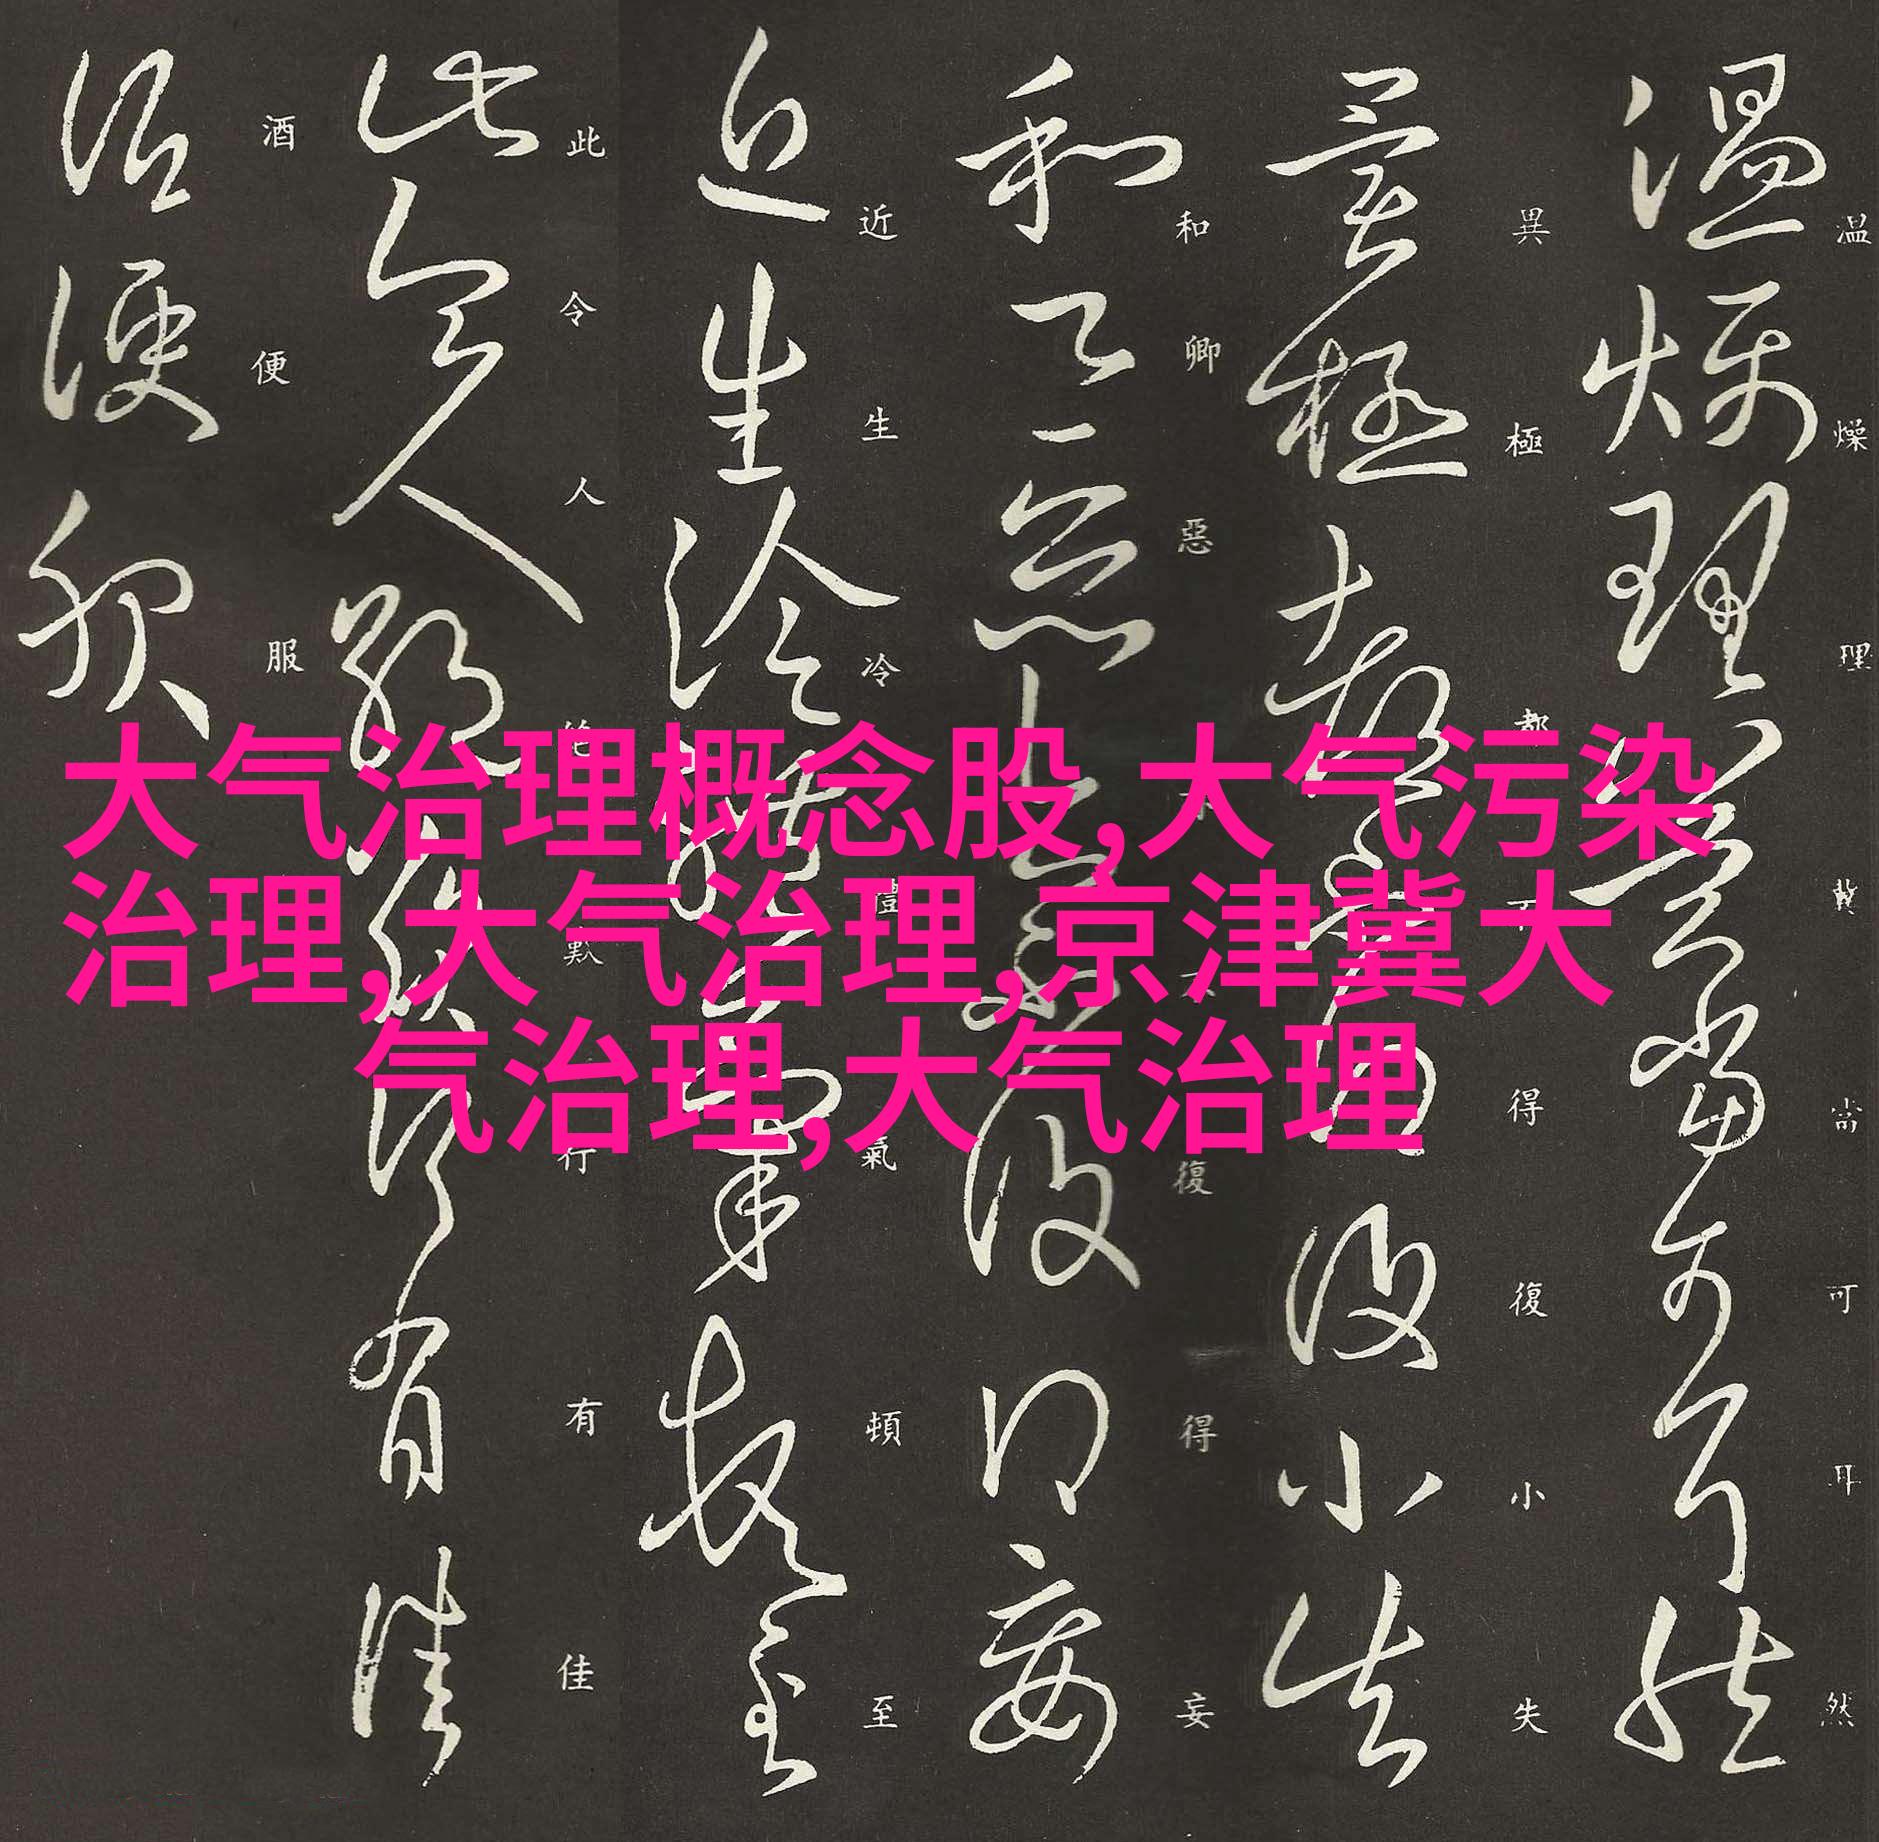 温燥理冀當可耳然
異極都不得復小失
和卿惡下不復得妄
近生冷體氣頓至
此令人絶歎行有佳
酒便服
大气治理概念股,大气污染
治理,大气治理,京津冀大
气治理,大气治理